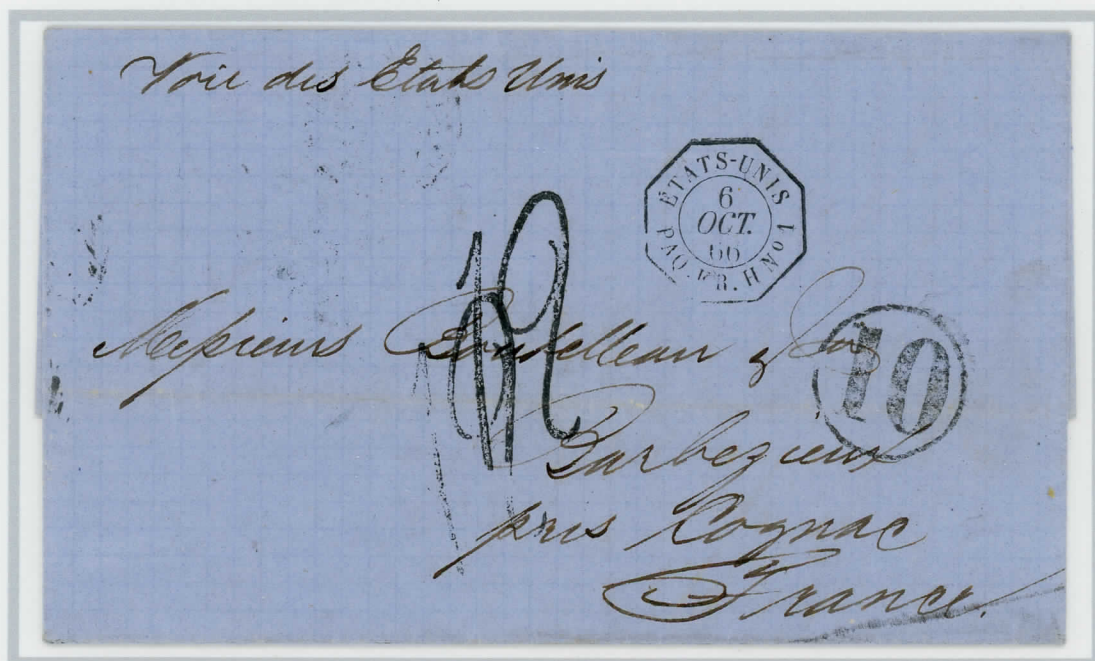 Voie des Etats Unis
ÉTATS-UNIS
6
OCT.
66
PAQ. FR. H No 1
Messieurs Boutelleau & Co
10
Barbezieux
près Cognac
France.